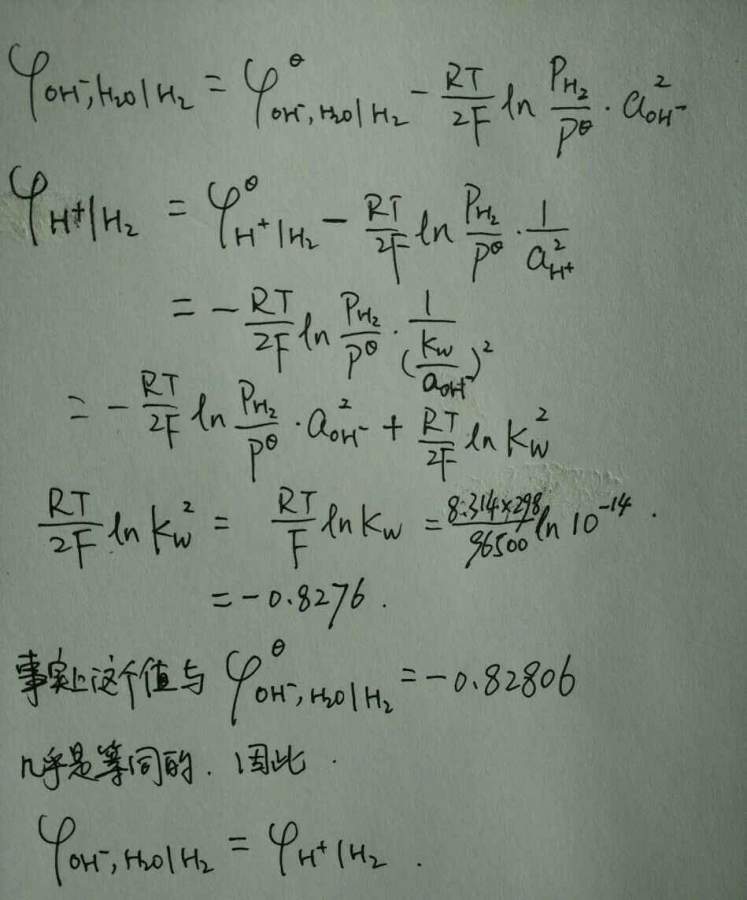 φ_{OH⁻,H₂O|H₂} = φ^θ_{OH⁻,H₂O|H₂} − \frac{RT}{2F} ln \frac{P_{H₂}}{P^θ} · a²_{OH⁻}
φ_{H⁺|H₂} = φ^θ_{H⁺|H₂} − \frac{RT}{2F} ln \frac{P_{H₂}}{P^θ} · \frac{1}{a²_{H⁺}}
= − \frac{RT}{2F} ln \frac{P_{H₂}}{P^θ} · \frac{1}{(\frac{K_w}{a_{OH⁻}})²}
= − \frac{RT}{2F} ln \frac{P_{H₂}}{P^θ} · a²_{OH⁻} + \frac{RT}{2F} ln K_w²
\frac{RT}{2F} ln K_w² = \frac{RT}{F} ln K_w = \frac{8.314×298}{96500} ln 10^{-14} .
= −0.8276 .
事实上这个值与 φ^θ_{OH⁻,H₂O|H₂} = −0.82806
几乎是等同的. 因此 .
φ_{OH⁻,H₂O|H₂} = φ_{H⁺|H₂} .